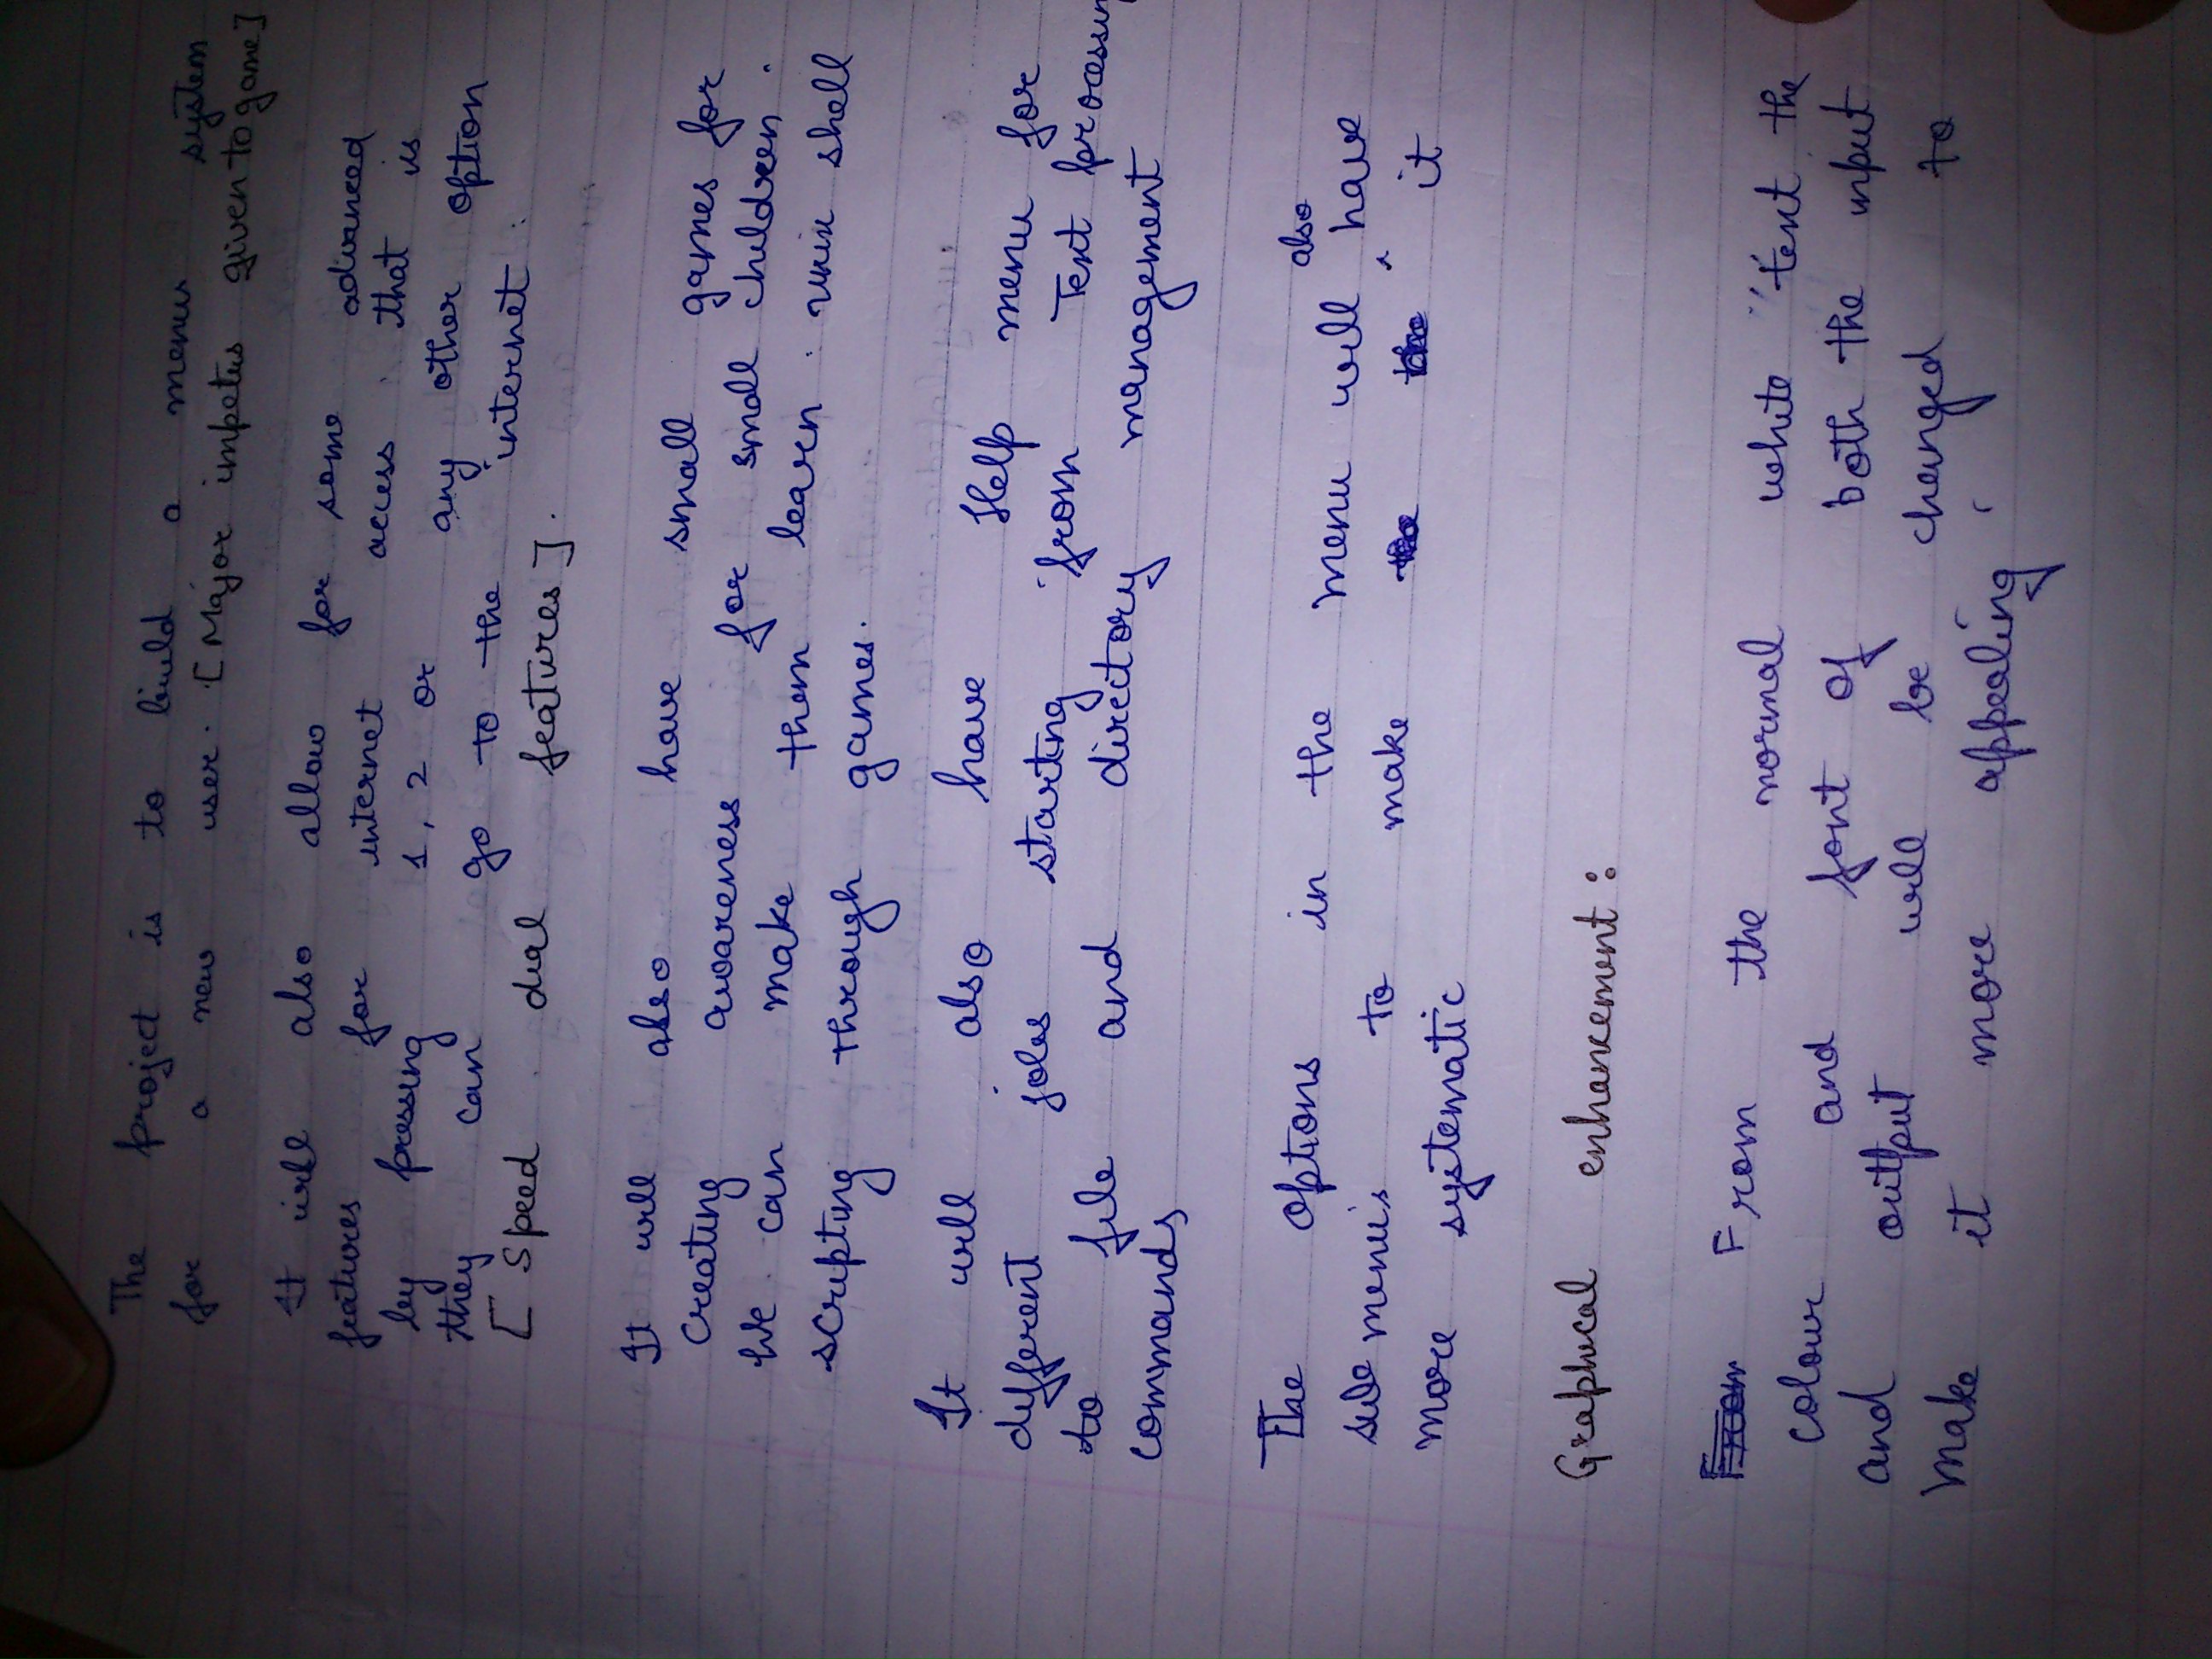 The project is to build a menu system
for a new user. [Major impetus given to game]
It will also allow for some advanced
features for internet access that is
by pressing 1, 2 or any other option
they can go to the internet.
[Speed dial features].
It will also have small games for
creating awareness for small children.
We can make them learn unix shell
scripting through games.
It will also have Help menu for
different jobs starting from Text processin
to file and directory management
commands
The options in the menu will also have
sub menu's to make it
more systematic
Graphical enhancement:
From the normal white text the
colour and font of both the input
and output will be changed to
make it more appealing